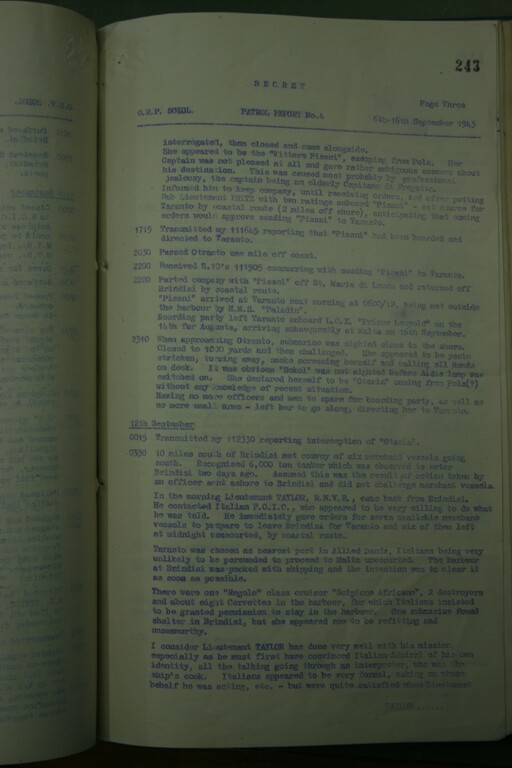 243
SECRET
Page Three
O.R.P. SOKOL. PATROL REPORT No.4 6th-16th September 1943
interrogated, then closed and came alongside.
She appeared to be the "Vittore Pisani", escaping from Pola. Her
Captain was not pleased at all and gave rather ambiguous answers about
his destination. This was caused most probably by professional
jealousy, the captain being an elderly Capitano di Fregata.
Informed him to keep company, until receiving orders, and after putting
Sub Lieutenant with two ratings onboard "Pisani" set course for
Taranto by coastal route (2 miles off shore), anticipating that coming
orders would approve sending "Pisani" to Taranto.
1715 Transmitted my 111645 reporting that "Pisani" had been boarded and
directed to Taranto.
2030 Passed Otranto one mile off coast.
2200 Received S.10's 111905 concurring with sending "Pisani" to Taranto.
2200 Parted company with "Pisani" off St. Maria di Leuca and returned off
Brindisi by coastal route.
"Pisani" arrived at Taranto next morning at being met outside
the harbour by H.M.S. "Paladin".
Boarding party left Taranto onboard L.C.I. "Prince Leopold" on the
14th for Augusta, arriving subsequently at Malta on 15th September.
2310 When approaching Otranto, submarine was sighted close to the shore.
Closed to yards and then challenged. She appeared to be panic
stricken, turning away, smoke screening herself and calling all hands
on deck. It was obvious "Sokol" was not sighted before Aldis lamp was
switched on. She declared herself to be "Otaria" coming from Pola(?)
without any knowledge of recent situation.
Having no more officers and men to spare for boarding party, as well as
no more small arms - left her to go along, directing her to Taranto.
12th September
0015 Transmitted my 112330 reporting interception of "Otaria".
0330 10 miles south of Brindisi met convoy of six merchant vessels going
south. Recognised 6,000 ton tanker which was observed to enter
Brindisi two days ago. Assumed this was the result of action taken by
an officer sent ashore to Brindisi and did not challenge merchant vessels.
In the morning Lieutenant TAYLOR, R.N.V.R., came back from Brindisi.
He contacted Italian F.O.I.C., who appeared to be very willing to do what
he was told. He immediately gave orders for seven available merchant
vessels to prepare to leave Brindisi for Taranto and six of them left
at midnight unescorted, by coastal route.
Taranto was chosen as nearest port in Allied hands, Italians being very
unlikely to be persuaded to proceed to Malta unescorted. The harbour
at Brindisi was packed with shipping and the intention was to clear it
as soon as possible.
There were one "Regolo" class cruiser "Scipione Africano", 2 destroyers
and about eight Corvettes in the harbour, for which Italians insisted
to be granted permission to stay in the harbour. One submarine found
shelter in Brindisi, but she appeared to be refitting and
unseaworthy.
I consider Lieutenant TAYLOR has done very well with his mission
especially as he must first have convinced Italian Admiral of his own
identity, all the talking going through an interpreter, who was the
ship's cook. Italians appeared to be very formal, asking on whose
behalf he was acting, etc. - but were quite satisfied when Lieutenant
TAYLOR......